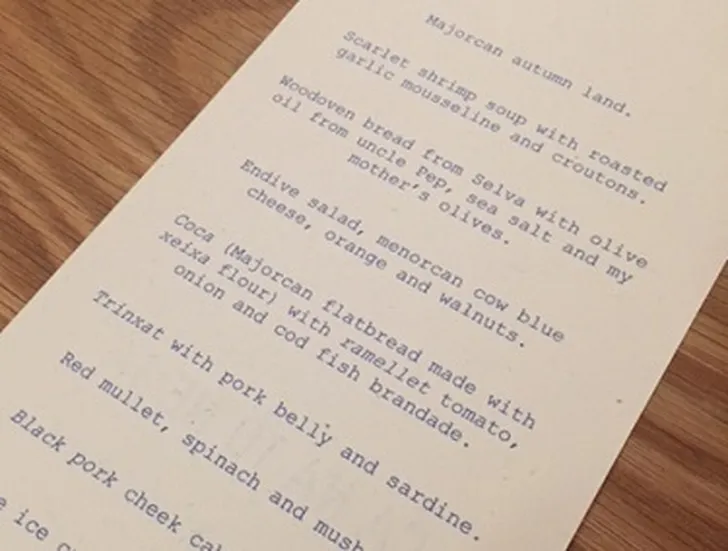 Majorcan autumn land.
Scarlet shrimp soup with roasted
garlic mousseline and croutons.
Woodoven bread from Selva with olive
oil from uncle Pep, sea salt and my
mother's olives.
Endive salad, menorcan cow blue
cheese, orange and walnuts.
Coca (Majorcan flatbread made with
xeixa flour) with ramellet tomato,
onion and cod fish brandade.
Trinxat with pork belly and sardine.
Red mullet, spinach and mush
Black pork cheek ca
ice c